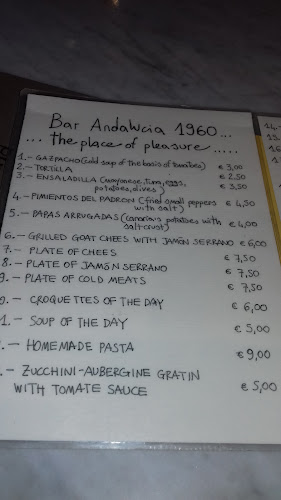 Bar Andalucia 1960...
... the place of pleasure .....
1.- GAZPACHO (Cold soup of the basis of tomatoes) € 3,00
2.- TORTILLA € 2,50
3.- ENSALADILLA (mayonese, tuna, eggs, € 3,50
potatoes, olives)
4.- PIMIENTOS DEL PADRON (fried small peppers € 4,50
with salt)
5.- PAPAS ARRUGADAS (canarios potatoes with € 4,00
saltcrust)
6.- GRILLED GOAT CHEES WITH JAMÓN SERRANO € 6,00
7.- PLATE OF CHEES € 7,50
8.- PLATE OF JAMÓN SERRANO € 7,50
9.- PLATE OF COLD MEATS € 7,50
0.- CROQUETTES OF THE DAY € 6,00
1.- SOUP OF THE DAY € 5,00
.- HOMEMADE PASTA € 9,00
.- ZUCCHINI-AUBERGINE GRATIN
WITH TOMATE SAUCE € 5,00
14.-
15
16